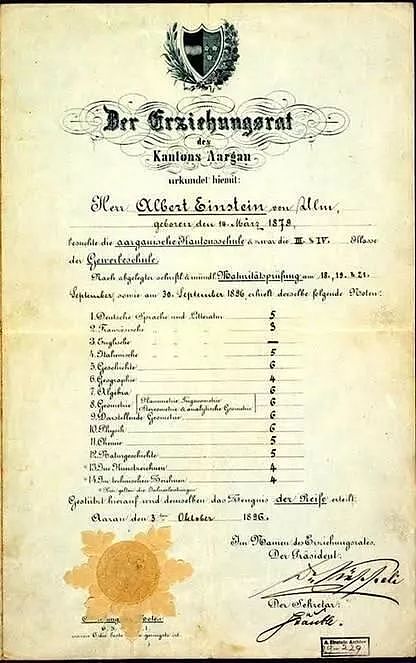 Der Erziehungsrat
des
Kantons Aargau
urkundet hiemit:
Herr Albert Einstein von Ulm,
geboren den 14. März 1879,
besuchte die aargauische Kantonsschule & zwar die III. & IV. Klasse
der Gewerbeschule.
Nach abgelegter schriftl. & mündl. Maturitätsprüfung am 18., 19. & 21.
September, sowie am 30. September 1896 erhielt derselbe folgende Noten:
1. Deutsche Sprache und Litteratur 5
2. Französische „ „ „ 3
3. Englische „ „ „ —
4. Italienische „ „ „ 5
5. Geschichte 6
6. Geographie 4
7. Algebra 6
8. Geometrie (Planimetrie, Trigonometrie, Stereometrie & analytische Geometrie) 6
9. Darstellende Geometrie 6
10. Physik 6
11. Chemie 5
12. Naturgeschichte 5
* 13. Im Kunstzeichnen 4
* 14. Im technischen Zeichnen 4
* Hier gelten die Jahresleistungen.
Gestützt hierauf wird demselben das Zeugnis der Reife erteilt.
Aarau den 3ten Oktober 1896.
Im Namen des Erziehungsrates,
Der Präsident:
Der Sekretär:
Stäuble.
A. Einstein Archive